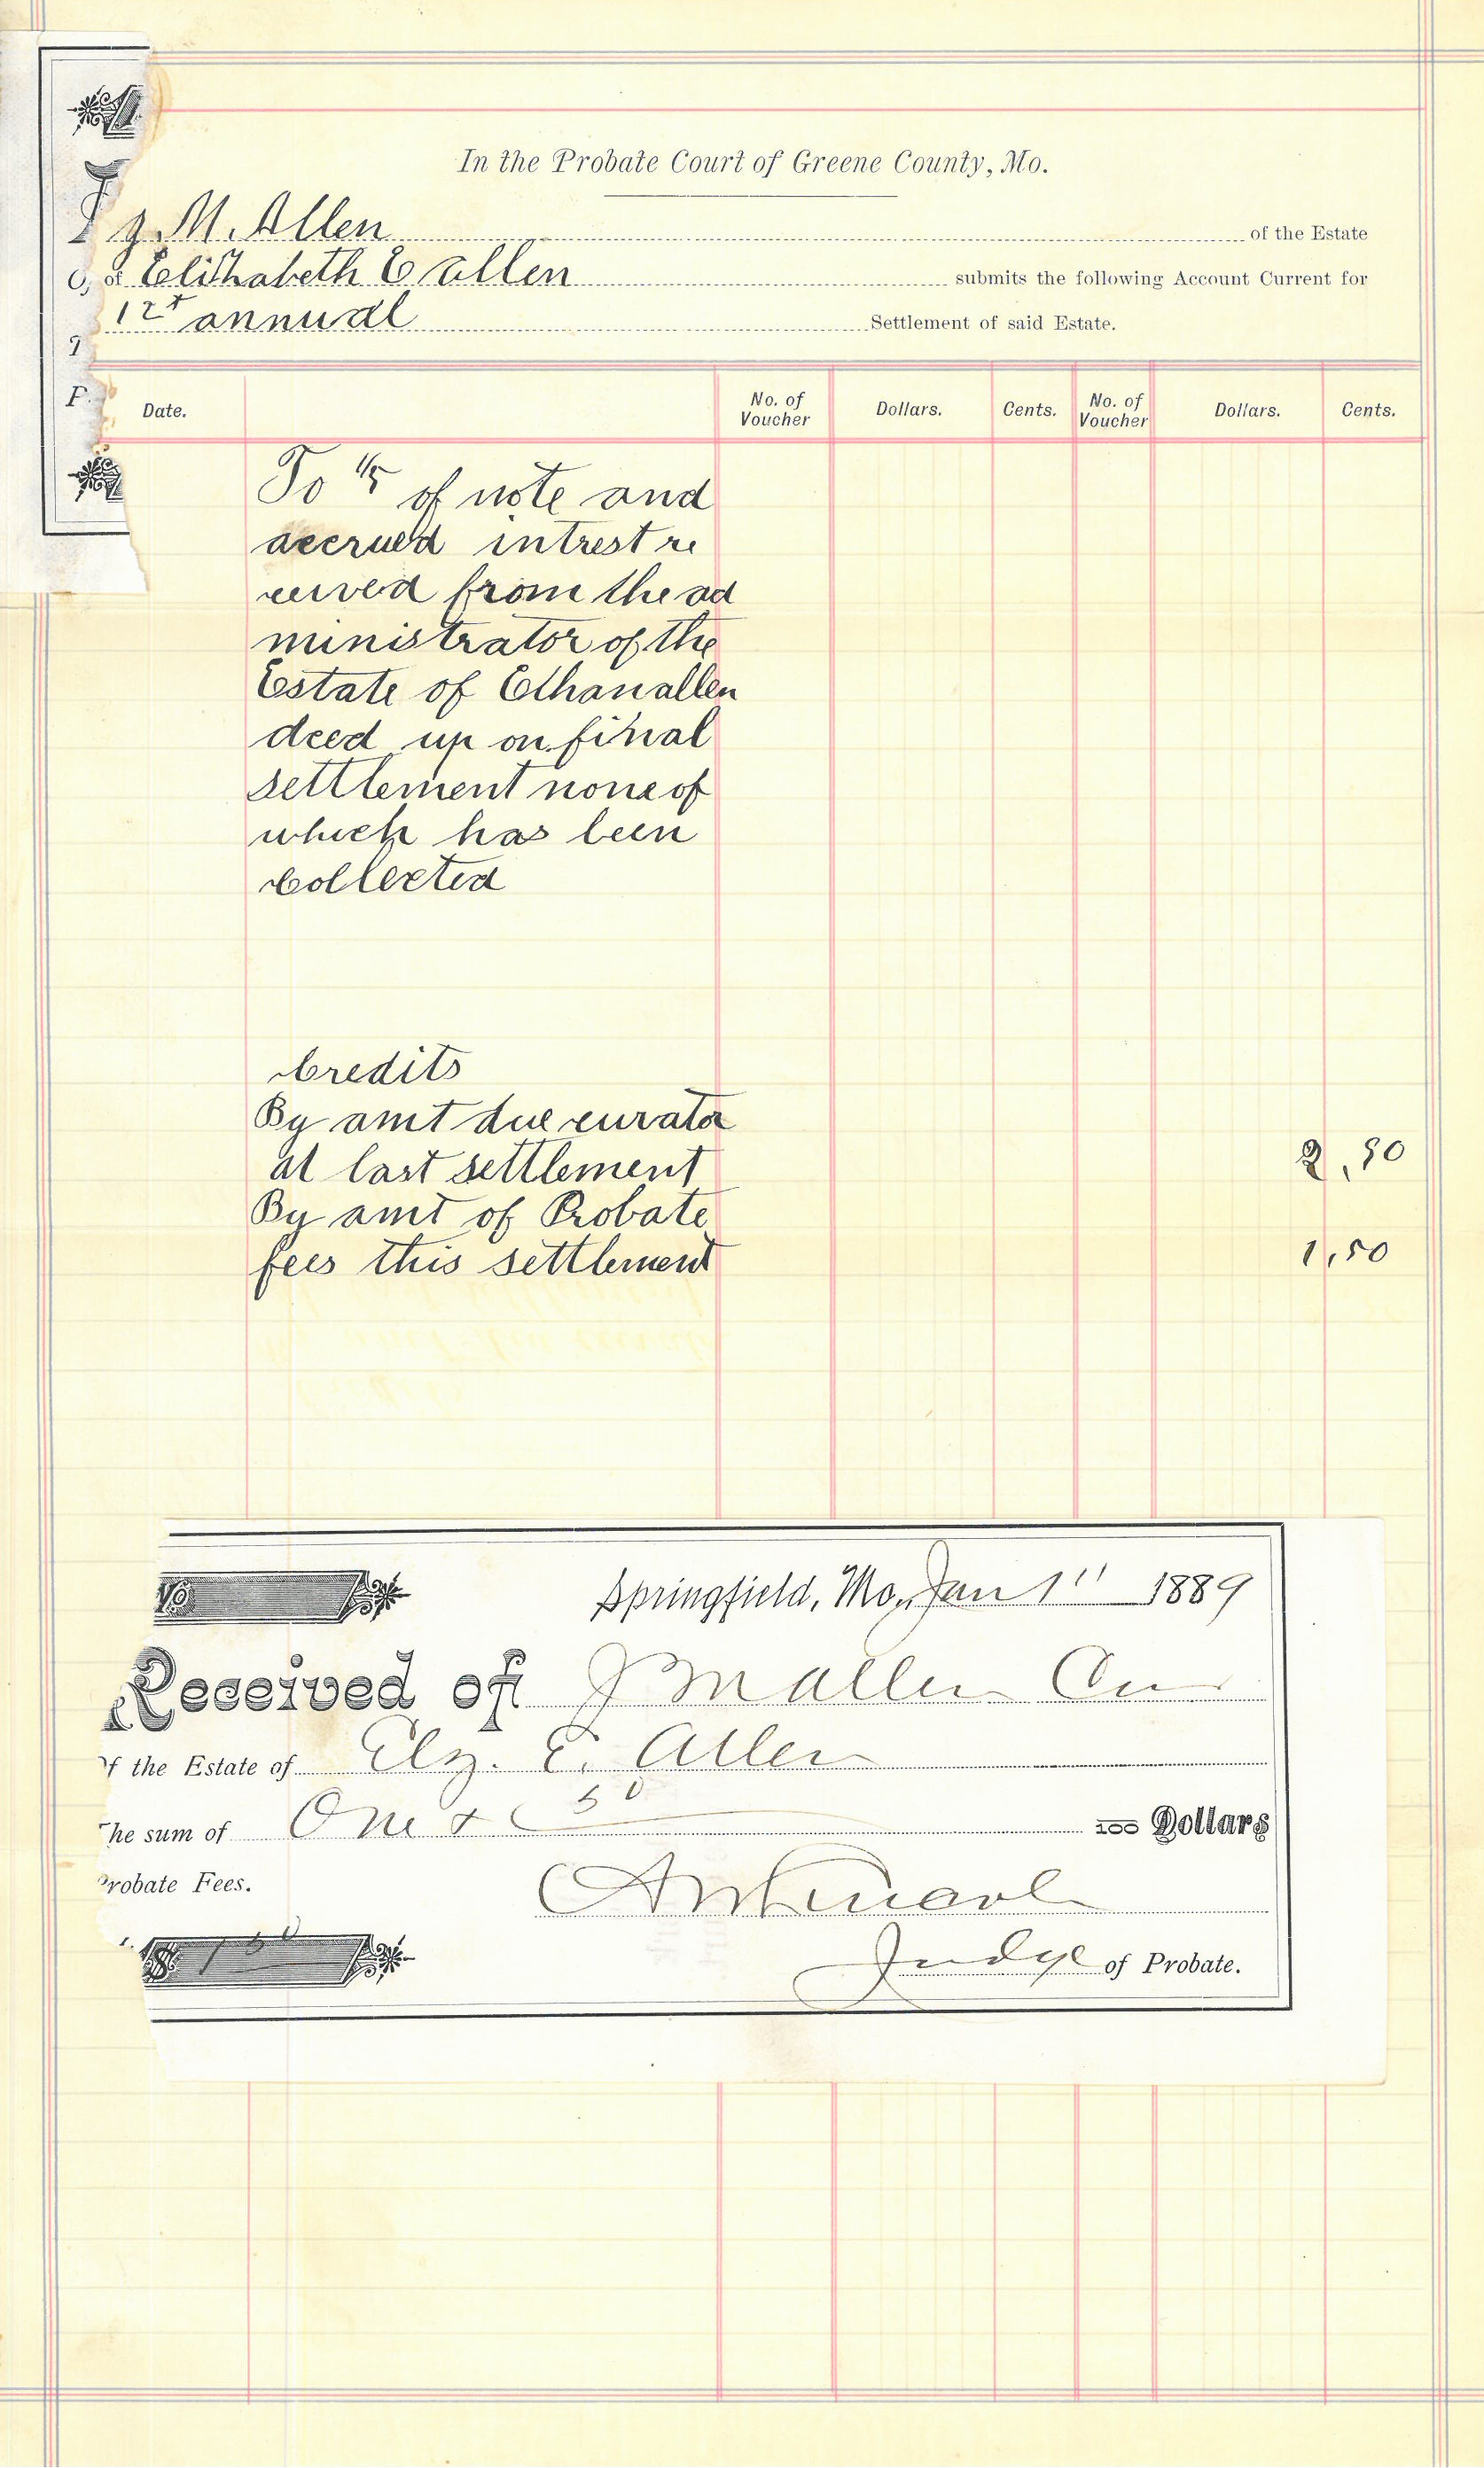 In the Probate Court of Greene County, Mo.
J M. Allen of the Estate
of Elizhabeth E allen submits the following Account Current for
1st annual Settlement of said Estate.
Date. No. of Voucher Dollars. Cents. No. of Voucher Dollars. Cents.
To 1/5 of note and
accrued intrest re
ceived from the ad
ministrator of the
Estate of Ethan allen
deed up on final
settlement none of
which has been
collected
Credits
By amt due curator
at last settlement 2,50
By amt of Probate
fees this settlement 1,50
Springfield, Mo., Jan 1" 1889
Received of J M Allen Cur
of the Estate of Elz. E. Allen
The sum of One & 50 100 Dollars
Probate Fees.
$ 1 50
Judge of Probate.